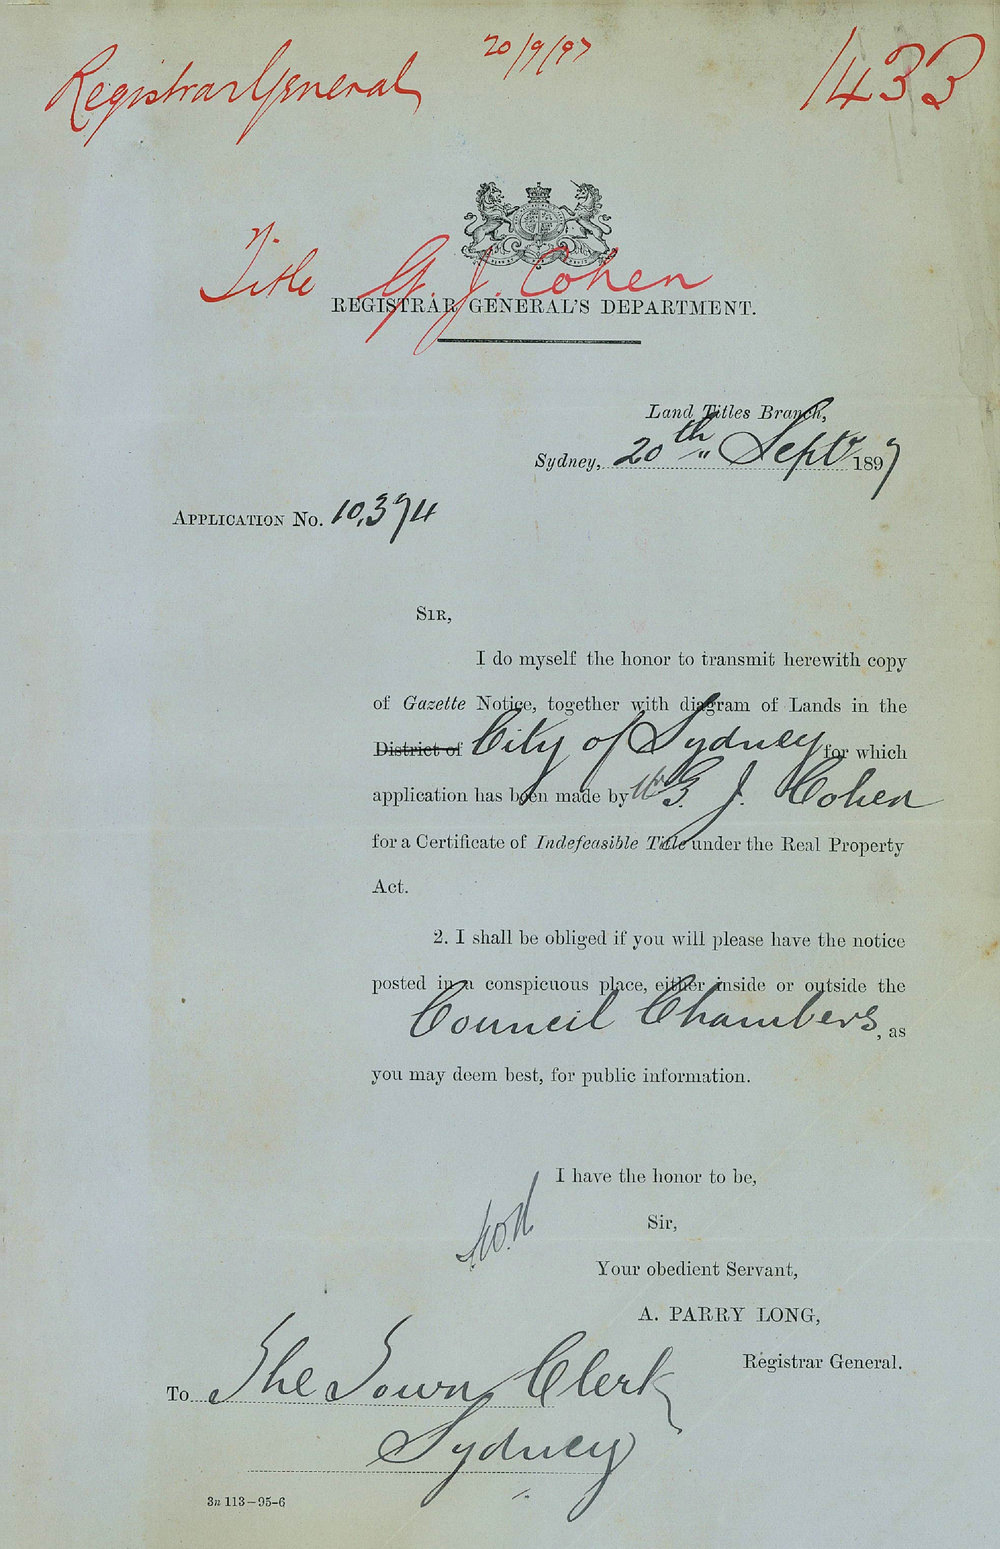 Registrar General 20/9/97 1433
Title G. J. Cohen
REGISTRAR GENERAL'S DEPARTMENT.
Land Titles Branch,
Sydney, 20th Septr 1897
APPLICATION No. 10,374
SIR,
I do myself the honor to transmit herewith copy
of Gazette Notice, together with diagram of Lands in the
District of City of Sydney for which
application has been made by Mr G. J. Cohen
for a Certificate of Indefeasible Title under the Real Property
Act.
2. I shall be obliged if you will please have the notice
posted in a conspicuous place, either inside or outside the
Council Chambers, as
you may deem best, for public information.
I have the honor to be,
Sir,
Your obedient Servant,
A. PARRY LONG,
Registrar General.
To The Town Clerk
Sydney
3n 113-95-6